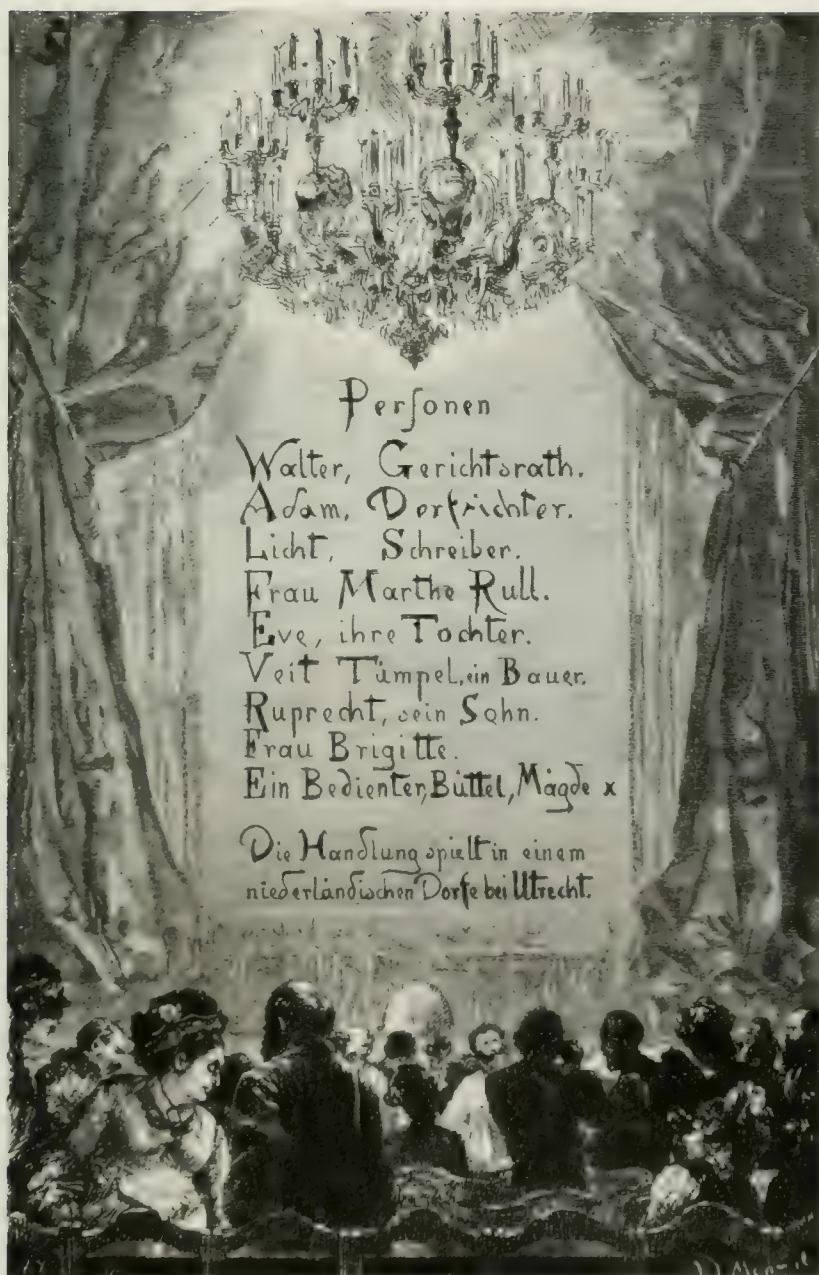 Perſonen
Walter, Gerichtsrath.
Adam, Dorfrichter.
Licht, Schreiber.
Frau Marthe Rull.
Eve, ihre Tochter.
Veit Tümpel, ein Bauer.
Ruprecht, sein Sohn.
Frau Brigitte.
Ein Bedienter, Büttel, Mägde x
Die Handlung spielt in einem
niederländischen Dorfe bei Utrecht.